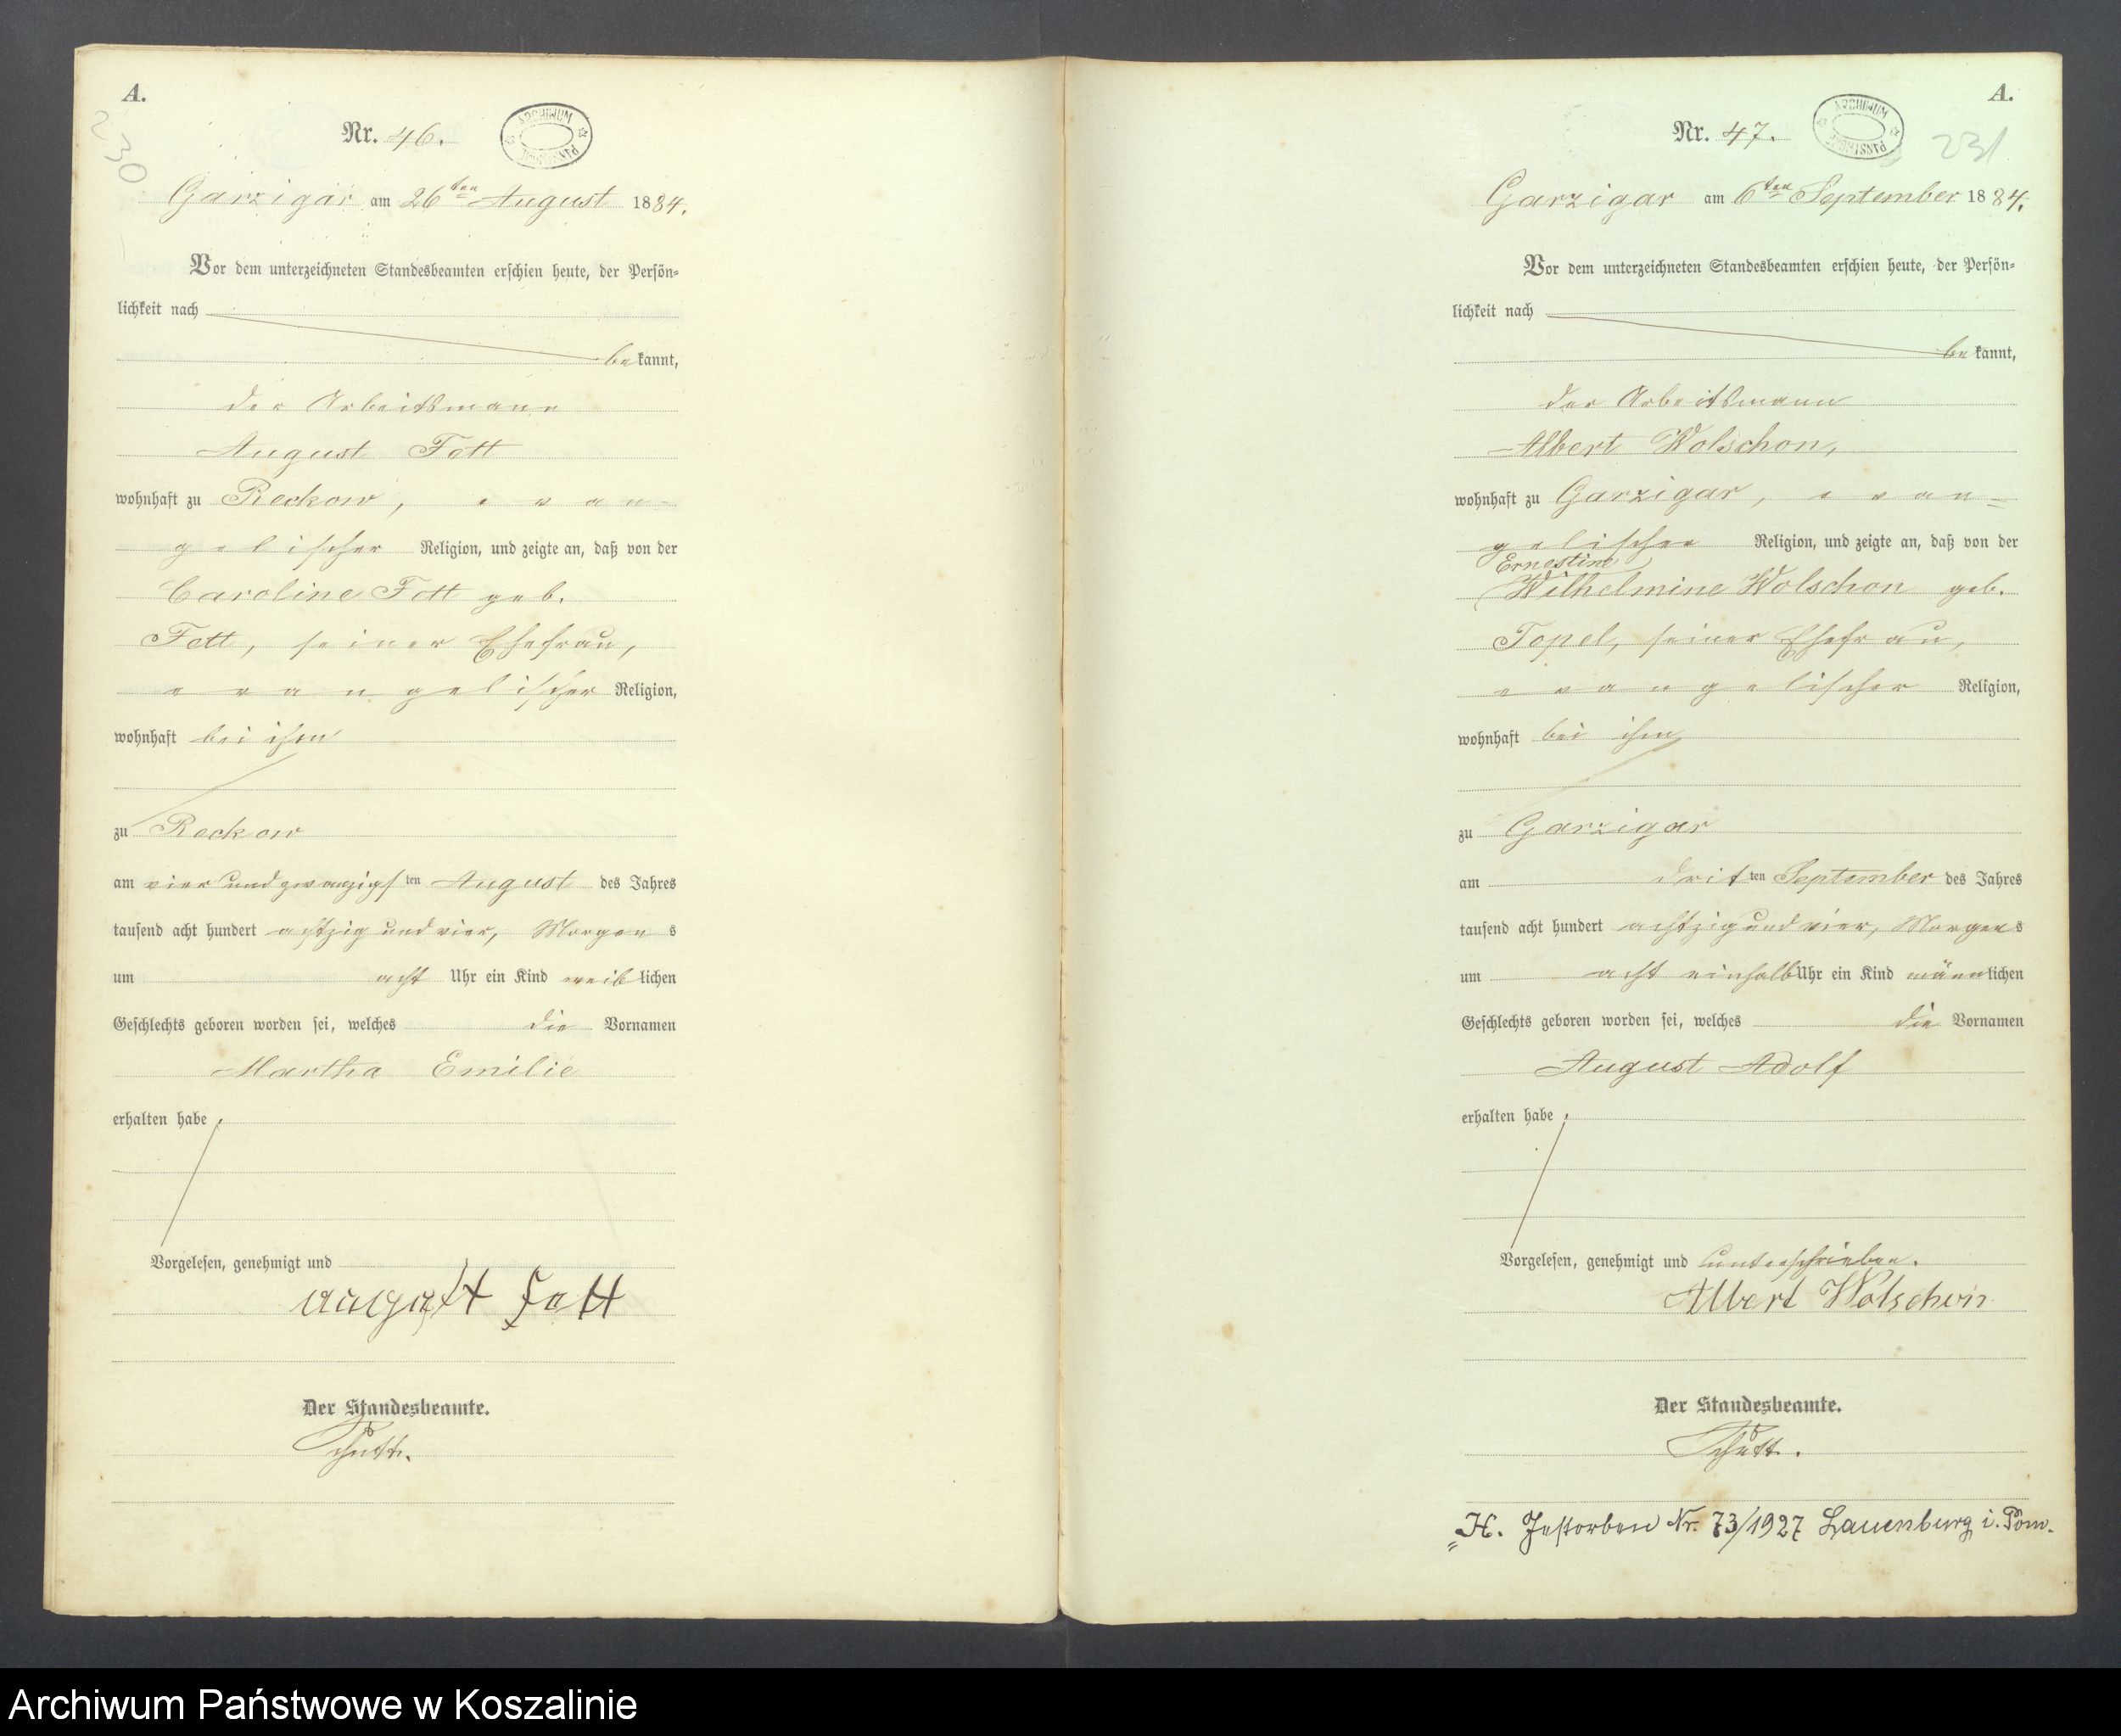 A.
230
Nr. 46.
ARCHIWUM PAŃSTWOWE
Garzigar am 26ten August 1884.
Vor dem unterzeichneten Standesbeamten erschien heute, der Persön-
lichkeit nach
bekannt,
der Arbeitsmann
August Fott
wohnhaft zu Reckow, evan-
gelischer Religion, und zeigte an, daß von der
Caroline Fott geb.
Fott, seiner Ehefrau,
evangelischer Religion,
wohnhaft bei ihm
zu Reckow
am vierundzwanzigsten August des Jahres
tausend acht hundert achtzig und vier, Morgens
um acht Uhr ein Kind weiblichen
Geschlechts geboren worden sei, welches die Vornamen
Martha Emilie
erhalten habe.
Vorgelesen, genehmigt und
August Fott
Der Standesbeamte.
Schütt.
A.
231
Nr. 47.
ARCHIWUM PAŃSTWOWE
Garzigar am 6ten September 1884.
Vor dem unterzeichneten Standesbeamten erschien heute, der Persön-
lichkeit nach
bekannt,
der Arbeitsmann
Albert Wolschon,
wohnhaft zu Garzigar, evan=
gelischer Religion, und zeigte an, daß von der
Ernestine
Wilhelmine Wolschon geb.
Topel, seiner Ehefrau,
evangelischer Religion,
wohnhaft bei ihm
zu Garzigar
am dritten September des Jahres
tausend acht hundert achtzig und vier, Morgens
um acht einhalb Uhr ein Kind männlichen
Geschlechts geboren worden sei, welches die Vornamen
August Adolf
erhalten habe.
Vorgelesen, genehmigt und unterschrieben.
Albert Wolschon
Der Standesbeamte.
Schütt.
H. Gestorben Nr. 73/1927 Lauenburg i. Pom.
Archiwum Państwowe w Koszalinie